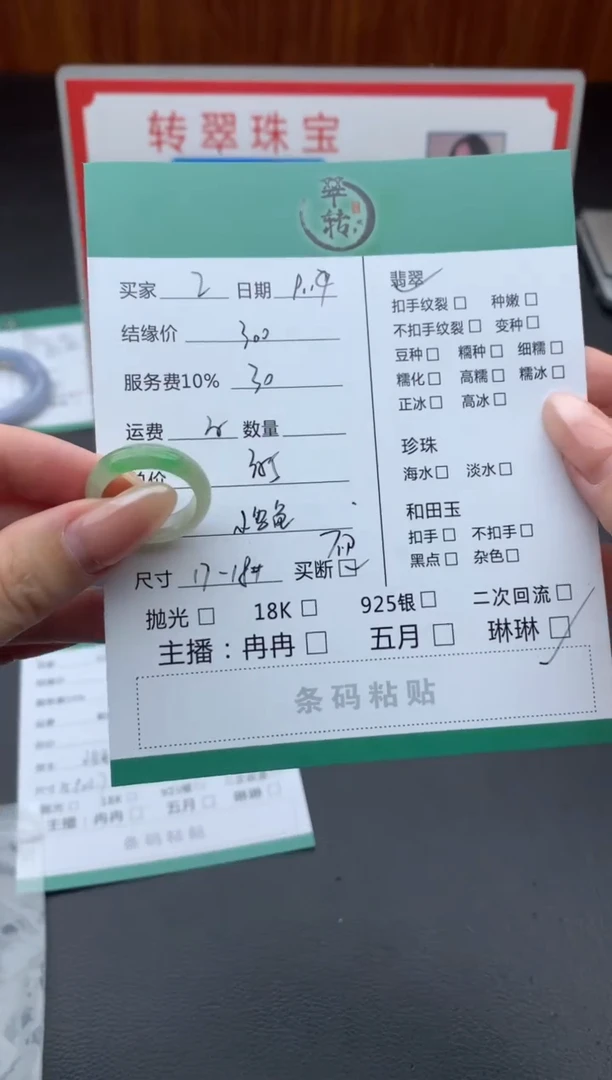 转翠珠宝
翠
转
买家 2 日期
结缘价 300
服务费10% 30
运费 数量
价
尺寸 17-18# 买断
翡翠
扣手纹裂 种嫩
不扣手纹裂 变种
豆种 糯种 细糯
糯化 高糯 糯冰
正冰 高冰
珍珠
海水 淡水
和田玉
扣手 不扣手
黑点 杂色
抛光 18K 925银 二次回流
主播：冉冉 五月 琳琳
条码粘贴
抛光 18K 925银
主播：冉冉 五月 琳琳
条码粘贴